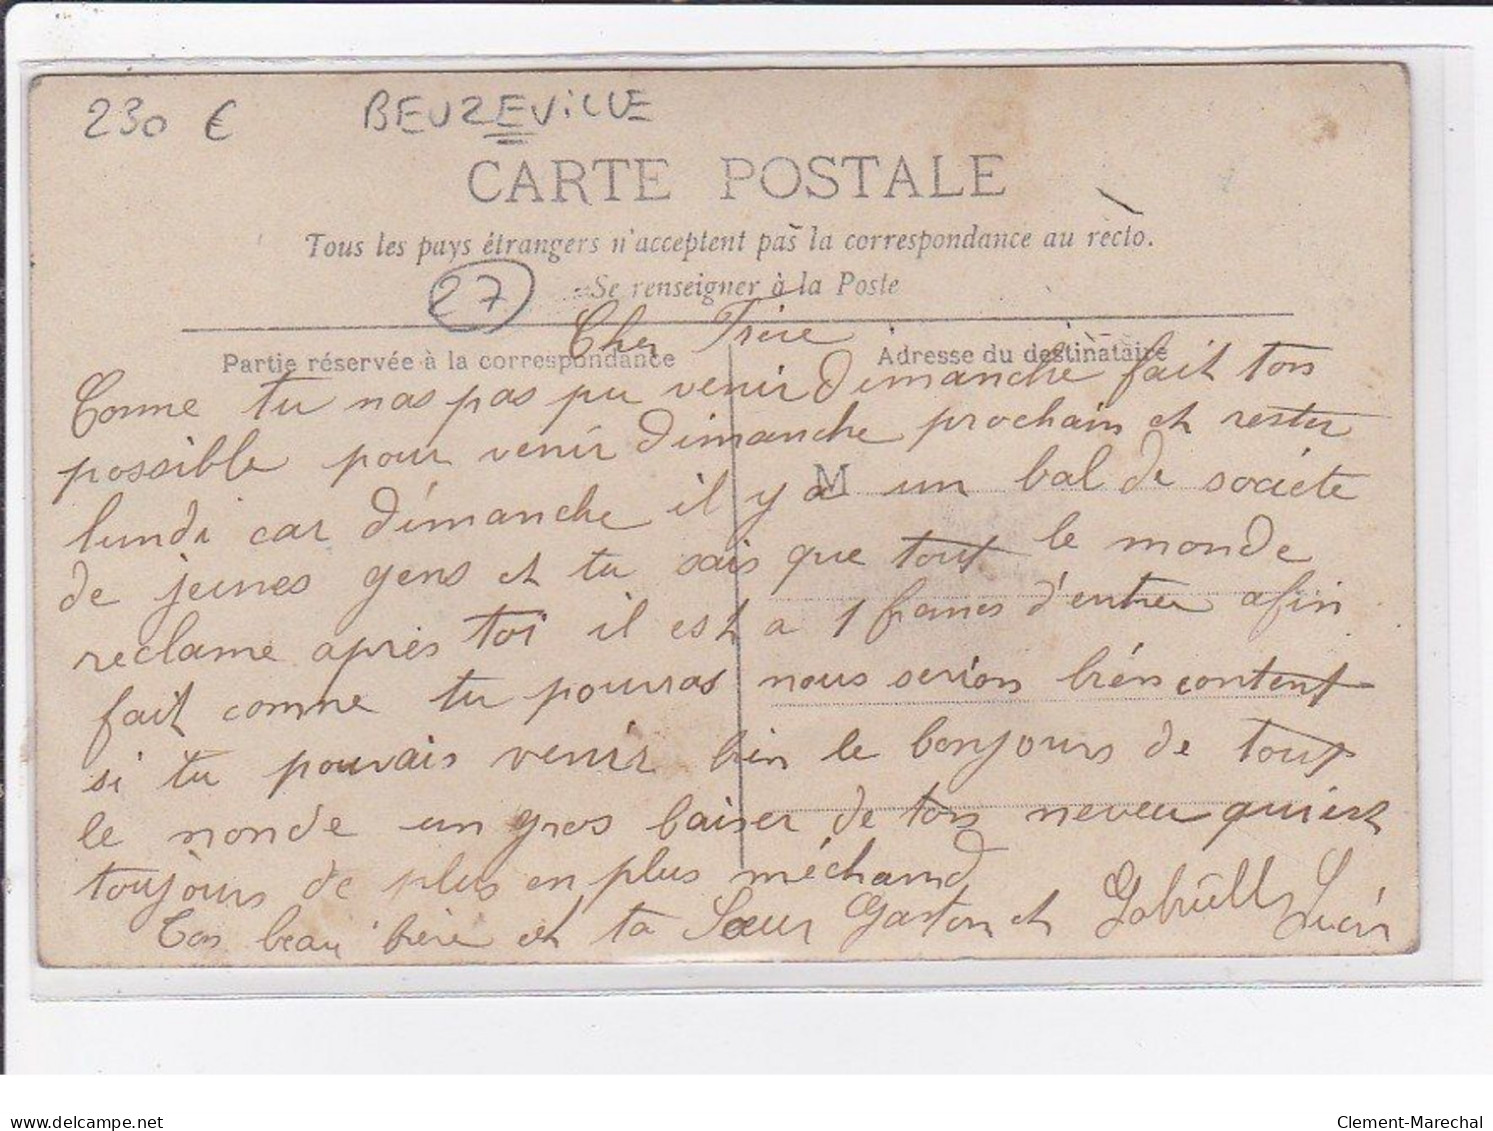 230 € BEUZEVILLE
CARTE POSTALE
Tous les pays étrangers n'acceptent pas la correspondance au recto.
27 Se renseigner à la Poste
Cher Frère
Partie réservée à la correspondance Adresse du destinataire
Comme tu nas pas pu venir dimanche fait ton
possible pour venir dimanche prochain et rester
M
lundi car dimanche il y a un bal de societe
de jeunes gens et tu sais que tout le monde
reclame après toi il est a 1 francs d'entrer afin
fait comme tu pourras nous serion bien content
si tu pouvais venir bien le bonjours de tout
le monde un gros baiser de ton neveu qui est
toujours de plus en plus méchand
Ton beau frère et ta Sœur Gaston et Gabrielle Lucien
delcampe.net
Clement-Marechal